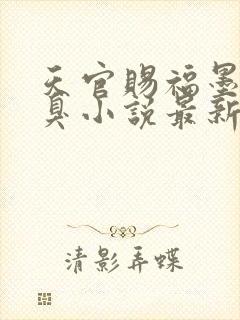 天官赐福墨
具小说最新
清影弄蝶